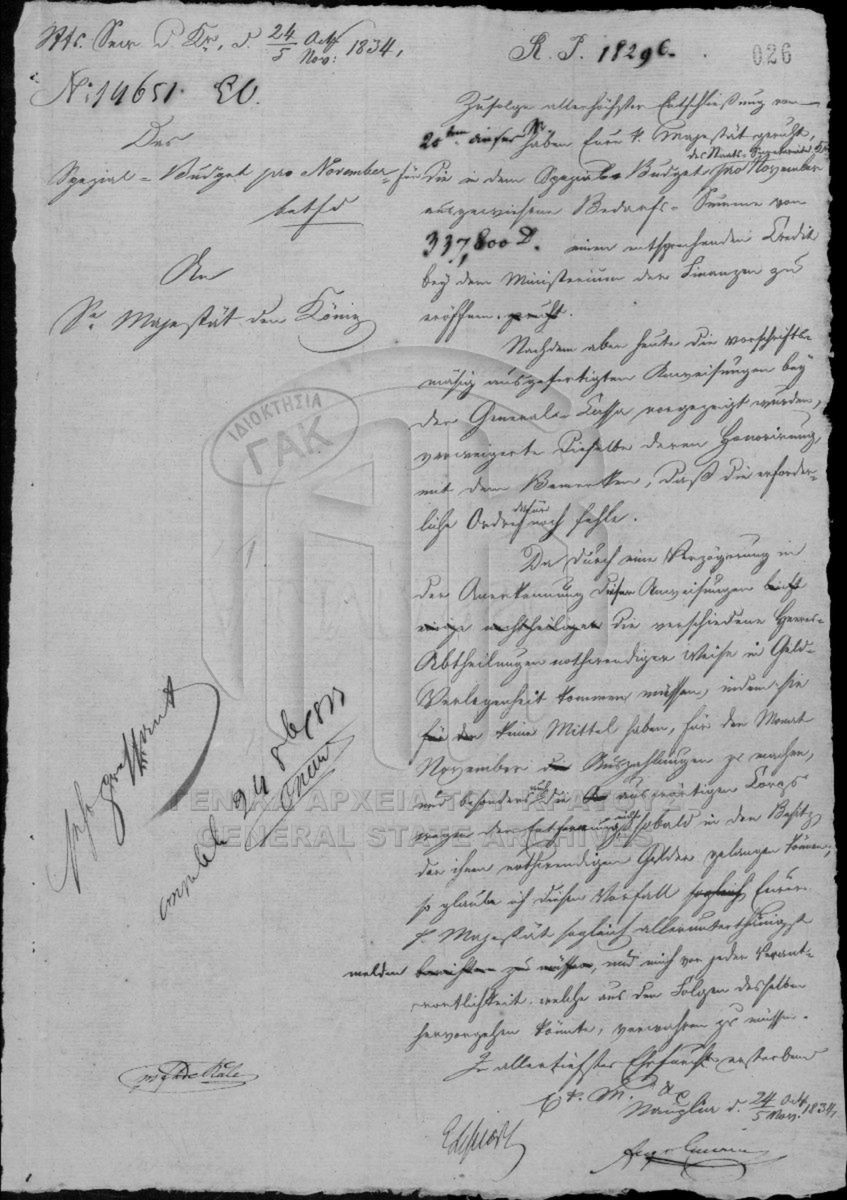 d. 24/5 Oct/Nov: 1834,
R. P. 18296.
026
N: 14651.
Das
Spezial-Budget pro November
betfd
An
Se. Majestät den König
Zufolge allerhöchster Entschließung vom
20ten dieses Ms. haben Eure k. Majestät geruht,
für die in dem Spezial-Budget des Staats-Secretariats pro November
ausgewiesene Bedarfs-Summe von
337,800 D. einen entsprechenden Credit
bey dem Ministerium der Finanzen zu
eröffnen. geruht.
Nachdem aber heute die vorschrifts-
mäßig ausgefertigten Anweisungen bey
der General-Cassa vorgezeigt wurden,
verweigerte dieselbe deren Honorirung
mit dem Bemerken, daß die erforder-
liche Ordre dafür noch fehle.
Da durch eine Verzögerung in
der Anerkennung dieser Anweisungen
die verschiedene Heeres-
Abtheilungen nothwendiger Weise in Geld-
Verlegenheit kommen müssen, indem sie
keine Mittel haben, für den Monat
November Auszahlungen zu machen,
und besonders auch die auswärtigen Corps
wegen der Entfernung nicht sobald in den Besitz
der ihnen nothwendigen Gelder gelangen können;
so glaube ich diesen Vorfall sogleich Eurer
k. Majestät sogleich allerunterthänigst
melden berichten zu müssen, und mich vor jeder Verant-
wortlichkeit, welche aus den Folgen desselben
hervorgehen könnte, verwahren zu müssen.
In allertiefster Ehrfurcht ersterbend
E. k. M.
Nauplia d. 24/5 Oct/Nov: 1834,
ΙΔΙΟΚΤΗΣΙΑ
ΓΑΚ
ΓΕΝΙΚΑ ΑΡΧΕΙΑ ΤΟΥ ΚΡΑΤΟΥΣ
GENERAL STATE ARCHIVES